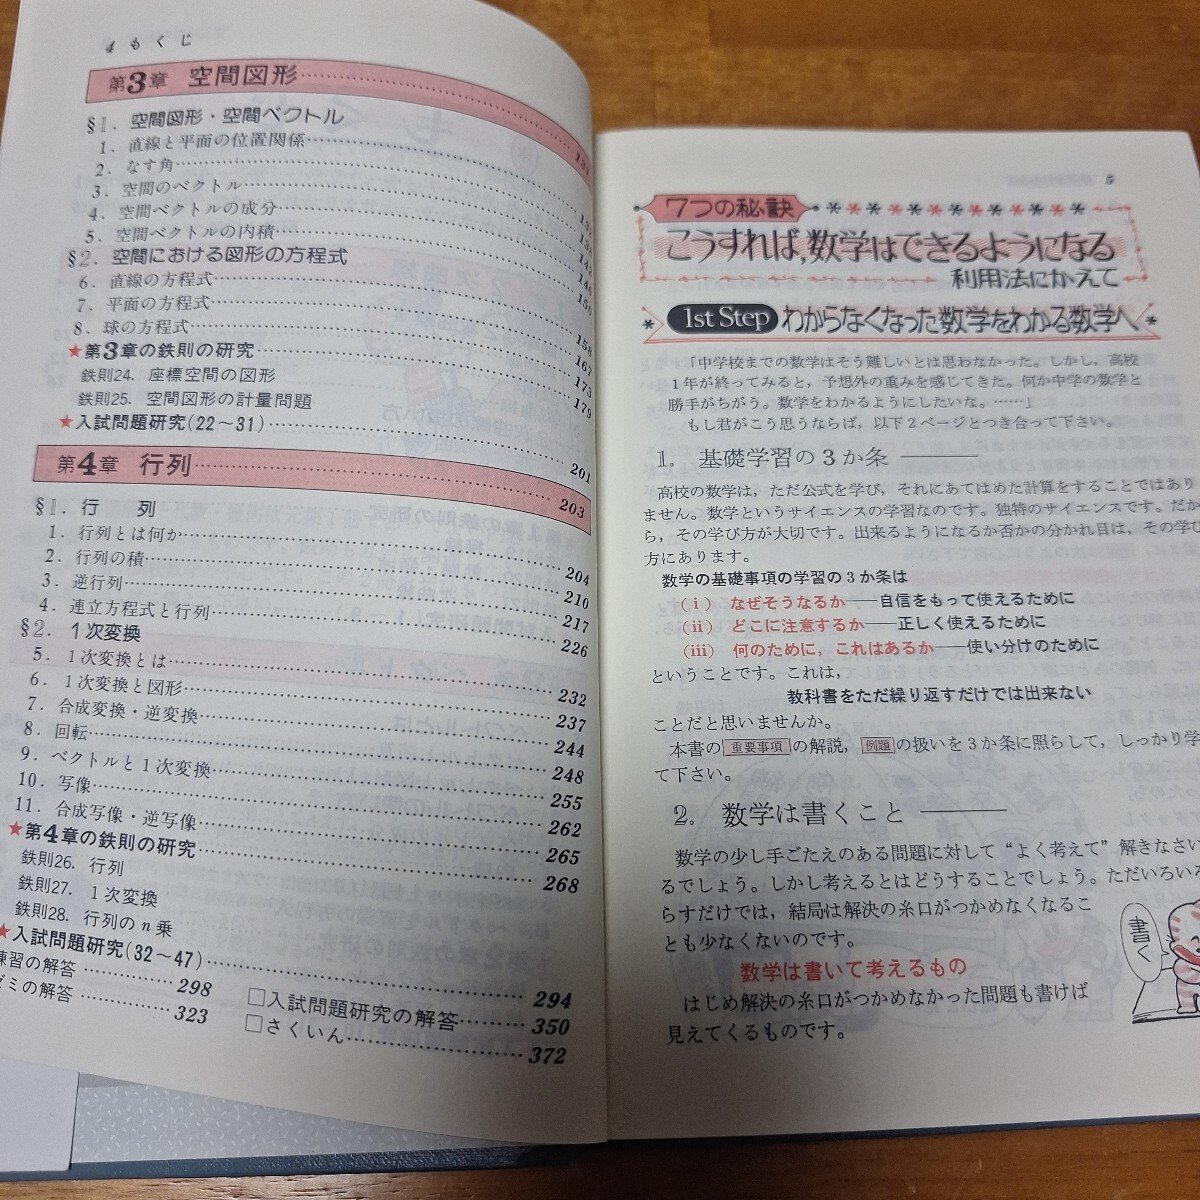 4 もくじ
第3章 空間図形
§1. 空間図形・空間ベクトル
1. 直線と平面の位置関係 131
2. なす角
3. 空間のベクトル
4. 空間ベクトルの成分
5. 空間ベクトルの内積
§2. 空間における図形の方程式
6. 直線の方程式
7. 平面の方程式
8. 球の方程式 158
★第3章の鉄則の研究 167
鉄則24. 座標空間の図形 173
鉄則25. 空間図形の計量問題 179
★入試問題研究(22〜31) 201
第4章 行列 203
§1. 行 列
1. 行列とは何か 204
2. 行列の積 210
3. 逆行列 217
4. 連立方程式と行列 226
§2. 1次変換
5. 1次変換とは 232
6. 1次変換と図形 237
7. 合成変換・逆変換 244
8. 回転 248
9. ベクトルと1次変換 255
10. 写像 262
11. 合成写像・逆写像 265
★第4章の鉄則の研究 268
鉄則26. 行列
鉄則27. 1次変換
鉄則28. 行列のn乗
★入試問題研究(32〜47) 294
練習の解答 298
ダミの解答 323
□入試問題研究の解答 350
□さくいん 372
5
7つの秘訣
こうすれば,数学はできるようになる
利用法にかえて
1st Step わからなくなった数学をわかる数学へ
「中学校までの数学はそう難しいとは思わなかった。しかし，高校
1年が終ってみると，予想外の重みを感じてきた。何か中学の数学と
勝手がちがう。数学をわかるようにしたいな。……」
もし君がこう思うならば，以下2ページとつき合って下さい。
1. 基礎学習の3か条
高校の数学は，ただ公式を学び，それにあてはめた計算をすることではあり
ません。数学というサイエンスの学習なのです。独特のサイエンスです。だか
ら，その学び方が大切です。出来るようになるか否かの分かれ目は，その学び
方にあります。
数学の基礎事項の学習の3か条は
(i) なぜそうなるか──自信をもって使えるために
(ii) どこに注意するか──正しく使えるために
(iii) 何のために，これはあるか──使い分けのために
ということです。これは，
教科書をただ繰り返すだけでは出来ない
ことだと思いませんか。
本書の 重要事項 の解説， 例題 の扱いを3か条に照らして，しっかり学
て下さい。
2. 数学は書くこと
数学の少し手ごたえのある問題に対して“よく考えて”解きなさい
るでしょう。しかし考えるとはどうすることでしょう。ただいろいろ
らすだけでは，結局は解決の糸口がつかめなくなるこ
とも少なくないのです。
数学は書いて考えるもの
はじめ解決の糸口がつかめなかった問題も書けば
見えてくるものです。
書く